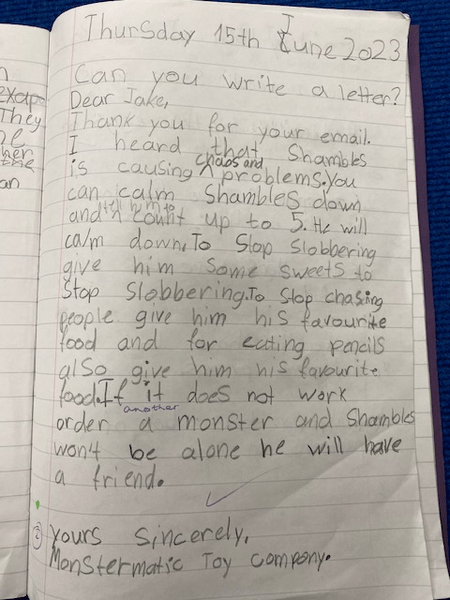 Thursday 15th June 2023
Can you write a letter?
Dear Jake,
Thank you for your email.
I heard that Shambles
is causing chaos and problems. You
can calm Shambles down
and tell him to count up to 5. He will
calm down. To Stop Slobbering
give him some sweets to
Stop Slobbering. To Stop chasing
people give him his favourite
food and for eating pencils
also give him his favourite
food. If it does not work
order a another monster and Shambles
won't be alone he will have
a friend.
Yours Sincerely,
Monstermatic Toy company.
exap
They
an